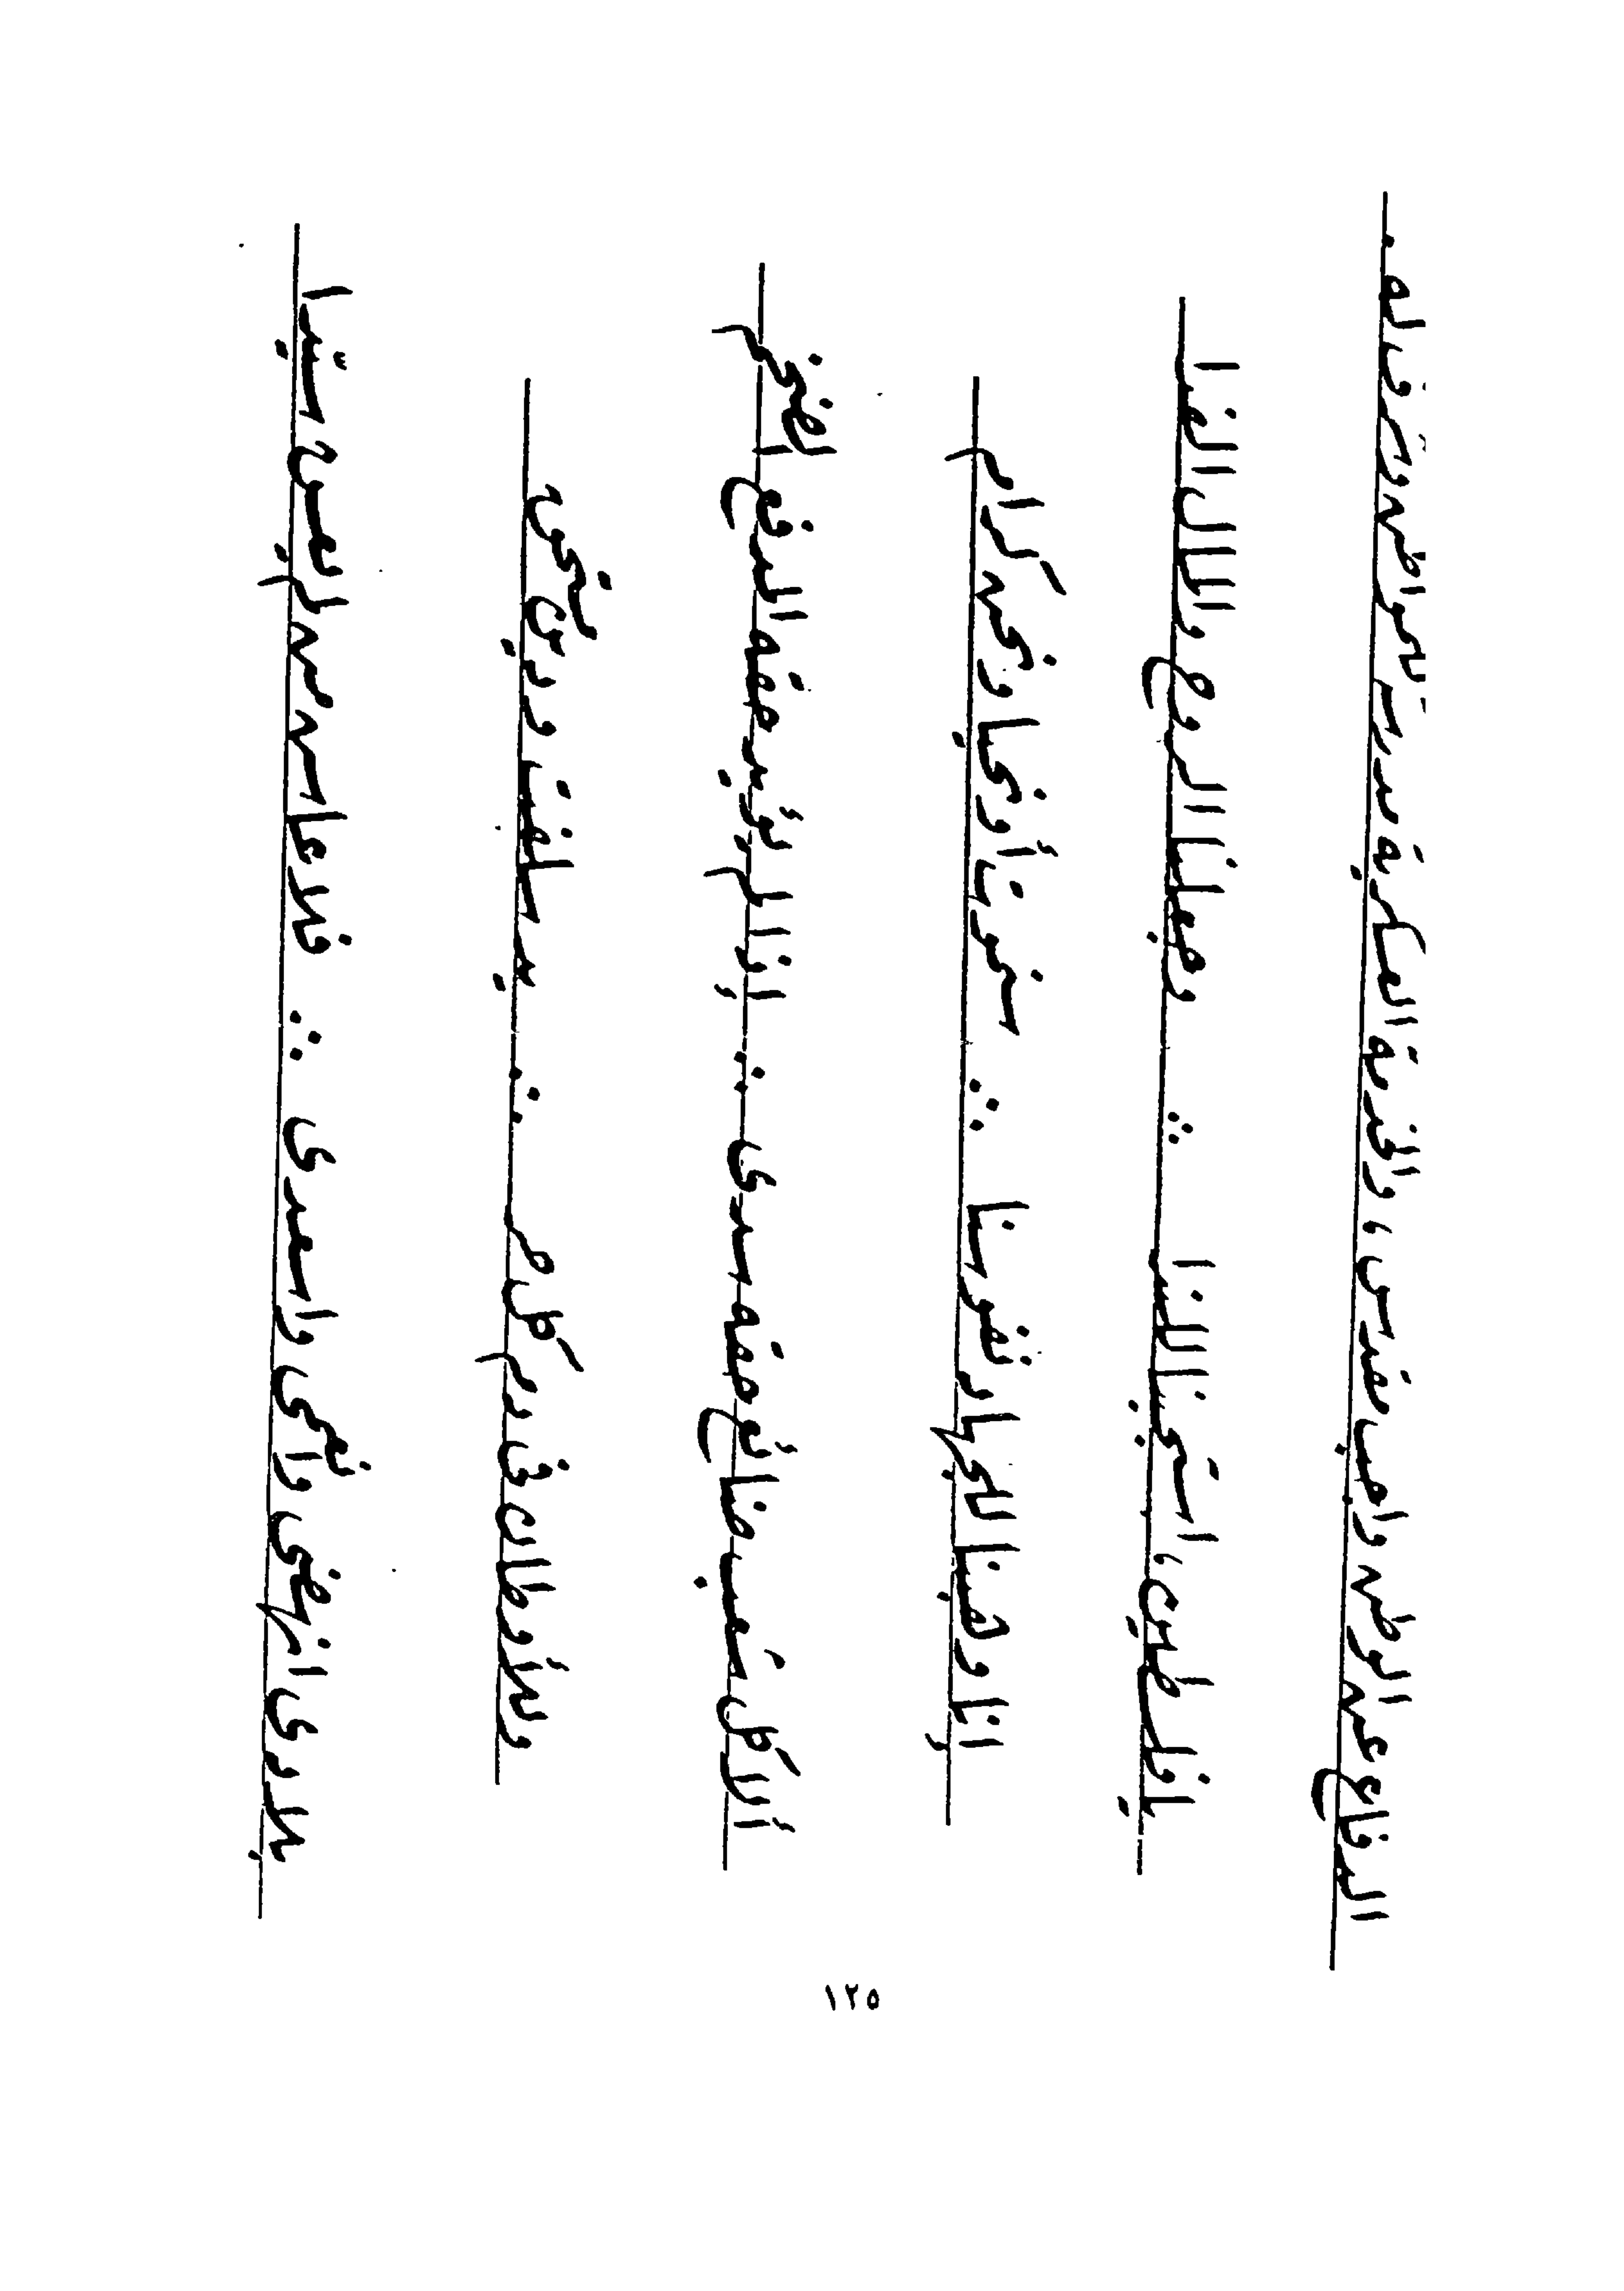 الدفاع عن الوطن واجب مقدس، والخدمة العسكرية مدرسة للمواطن وشرف له.
يا فلسطين، استجبنا للندا ∴ وجعلنا الروح والمال الفدا
إنا وهبنا للجهاد نفوسنا ∴ سنموت أو نحيا ونحن كرام
ألا كل شعب ضائع حقه سدى ∴ إذا لم يؤيد حقه المدفع الضخم
وللأوطان في دم كل حر ∴ يد سلفت ودين مستحق
بلادي انهضي وانعمي واسعدي ∴ فلا عاش من لم يعش سيّدا
١٢٥